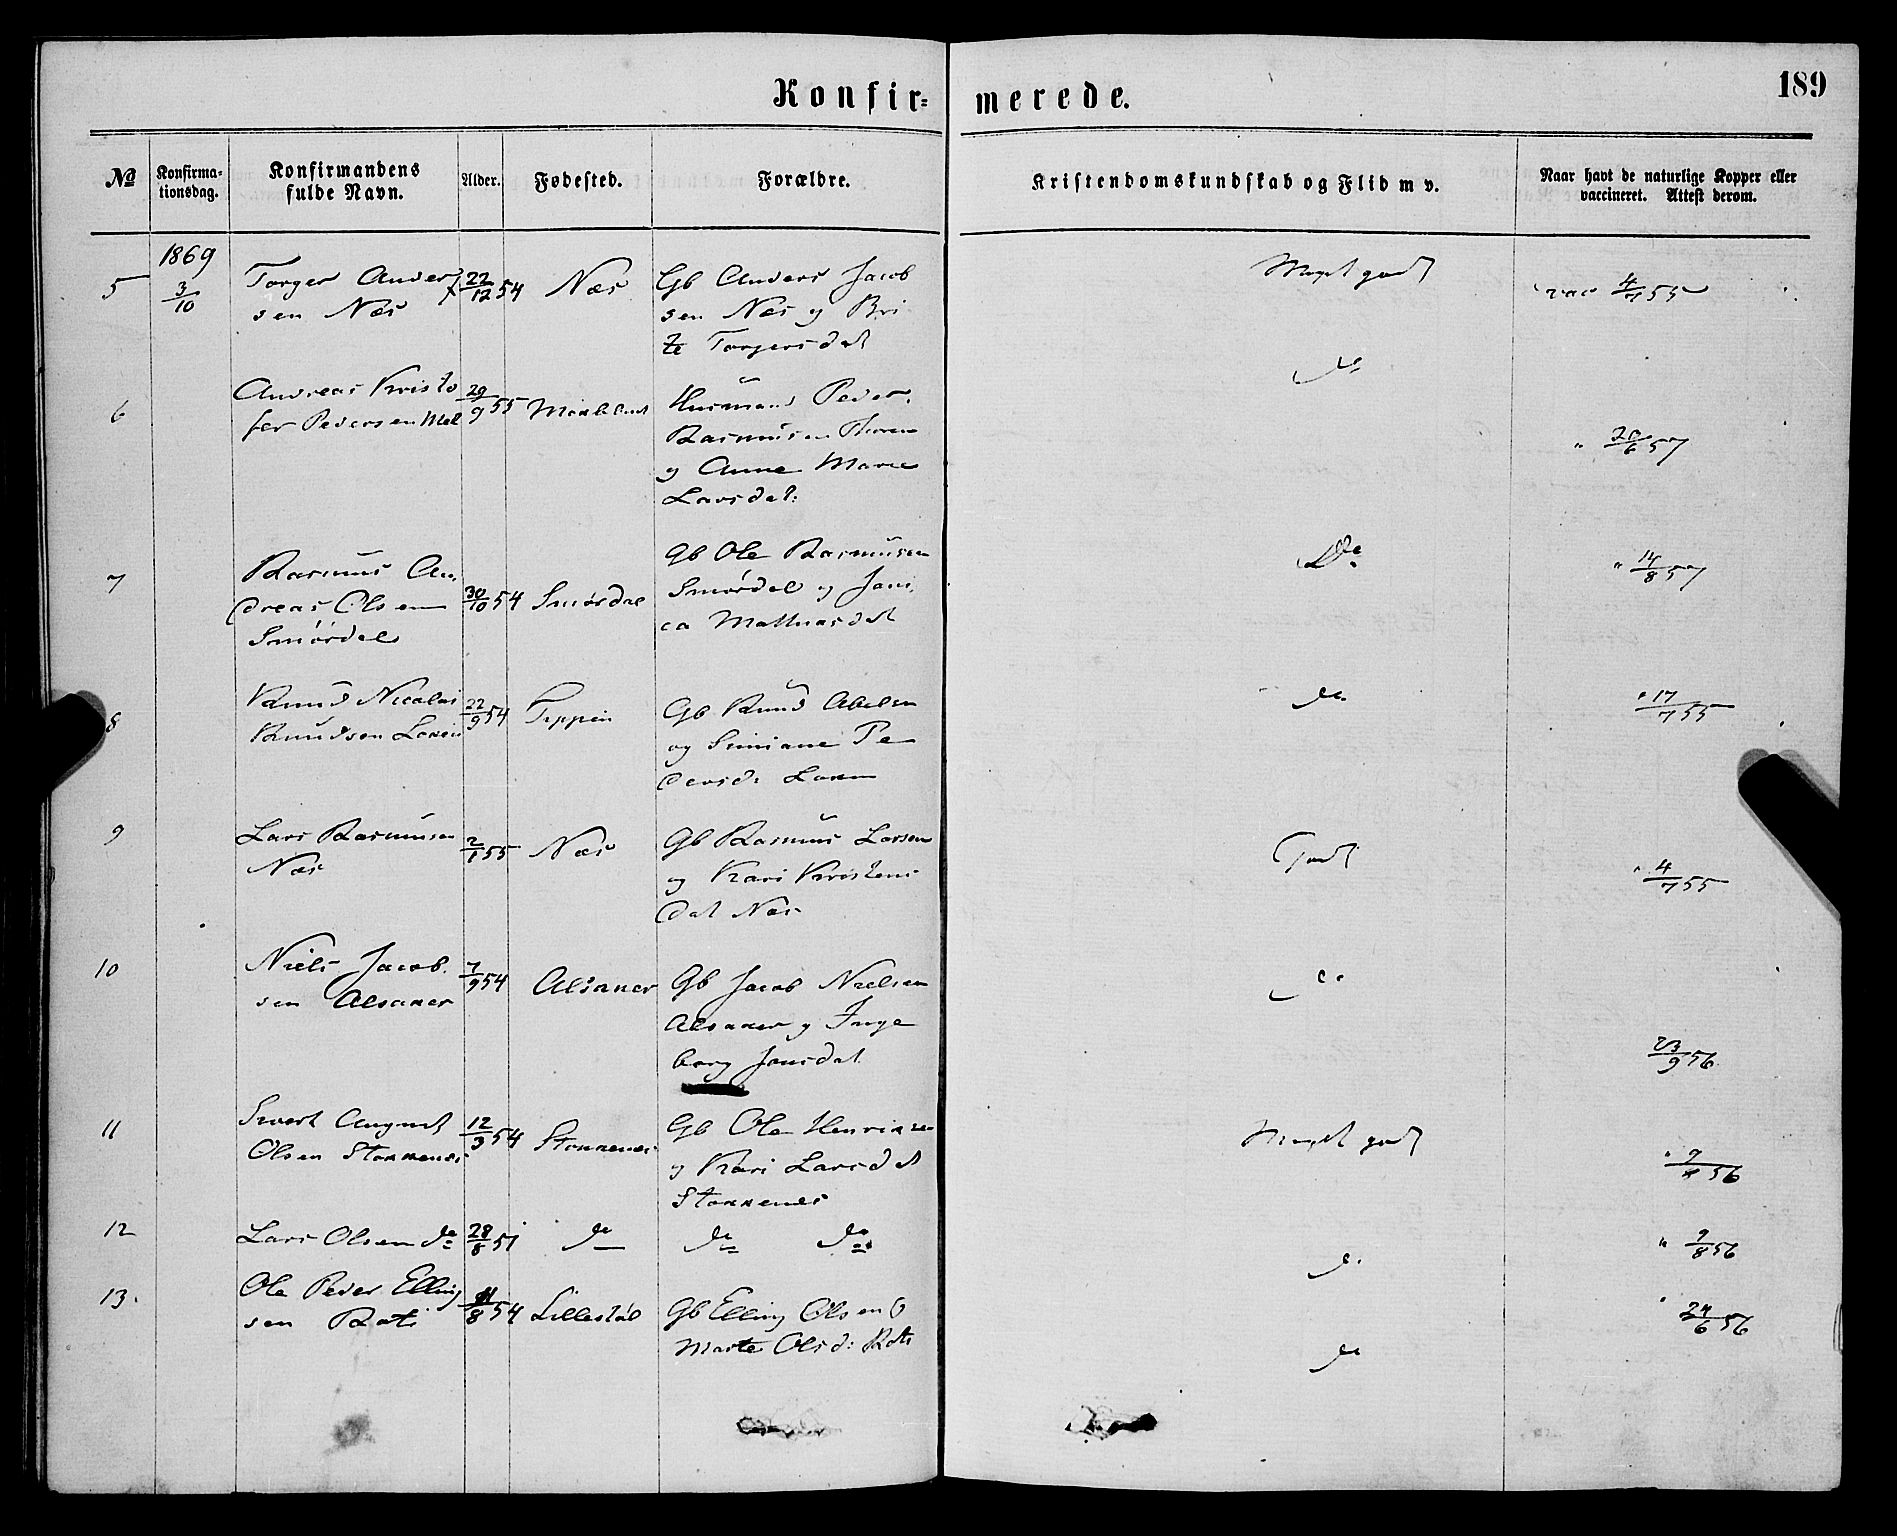 Konfir=
merede.
189
No
Konfirma-
tionsdag.
Konfirmandens
fulde Navn.
Alder.
Fødested.
Forældre.
Kristendomskundskab og Flid m v.
Naar havt de naturlige Kopper eller
vaccineret. Attest derom.
1869
5
3/10
Torger Ander
sen Næs
22/12 54
Næs
Gb Anders Jacob
sen Næs og Bri
te Torgersdat
Meget godt
vac 4/7 55
6
Andreas Kristo
fer Pedersen Mel
29/9 55
Husmand Peder
Rasmusen
og Anne Marie
Larsdat:
do
" 6 57
7
Rasmus An
dreas Olsen
Smørdal
30/10 54
Smørdal
Gb Ole Rasmusen
Smørdal og Jani
ca Mathiasdat
Do
" 14/8 57
8
Knud Nicolai
Knudsen
22/9 54
Gb Knud Abelsen
og Simiane Pe
dersd:
do
" 17/7 55
9
Lars Rasmusen
Næs
2/1 55
Næs
Gb Rasmus Larsen
og Kari Kristens
dat Næs
Godt
" 4/7 55
10
Niels Jacob
sen Alsaker
7/9 54
Alsaker
Gb Jacob Nielsen
Alsaker og Inge
borg Jonsdat
do
23/9 56
11
Sivert August
Olsen Stokkenes
12/3 54
Stokkenes
Gb Ole Henriksen
og Kari Larsdat
Stokkenes
Meget godt
" 56
12
Lars Olsen do
28/8 51
do
do do
do
" 9/8 56
13.
Ole Peder Elling
sen Roti
11/8 54
Lillestøl
Gb Elling Olsen &
Marte Olsd: Roti
do
" 24/6 56